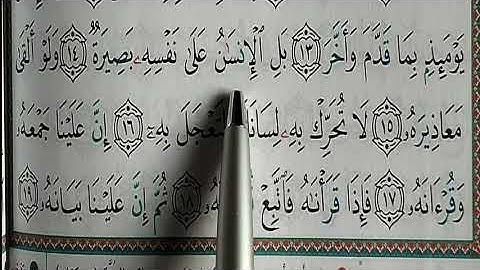 يَوْمَئِذٍۭ بِمَا قَدَّمَ وَأَخَّرَ ١٣ بَلِ ٱلْإِنسَٰنُ عَلَىٰ نَفْسِهِۦ بَصِيرَةٌ ١٤ وَلَوْ أَلْقَىٰ
مَعَاذِيرَهُۥ ١٥ لَا تُحَرِّكْ بِهِۦ لِسَانَكَ لِتَعْجَلَ بِهِۦٓ ١٦ إِنَّ عَلَيْنَا جَمْعَهُۥ
وَقُرْءَانَهُۥ ١٧ فَإِذَا قَرَأْنَٰهُ فَٱتَّبِعْ ١٨ ثُمَّ إِنَّ عَلَيْنَا بَيَانَهُۥ ١٩